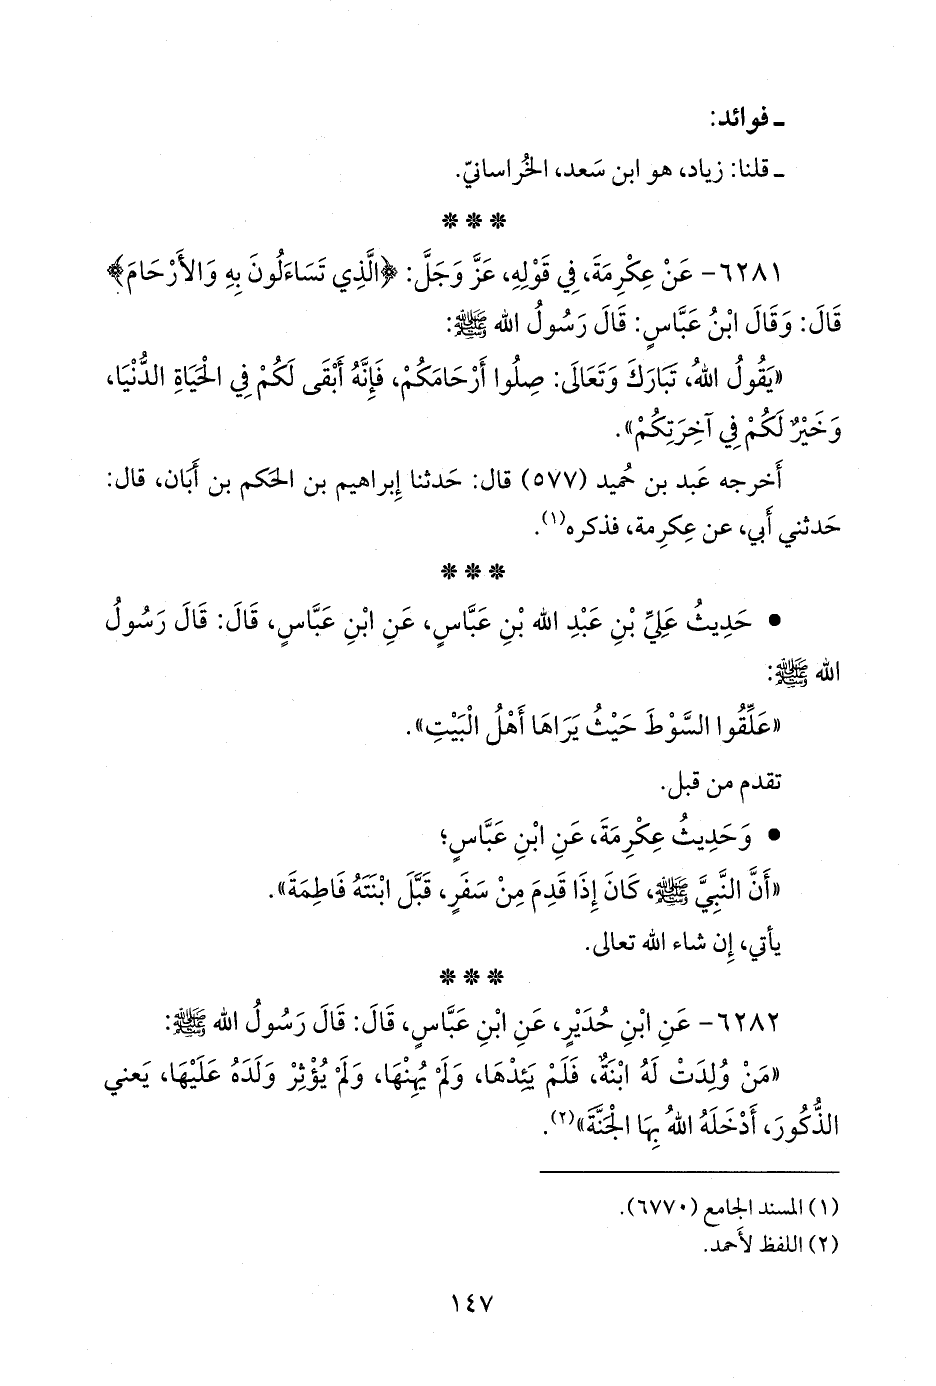 ـ فوائد:
ـ قلنا: زياد، هو ابن سَعد، الخُراسانيّ.
❊ ❊ ❊
٦٢٨١- عَنْ عِكْرِمَةَ، فِي قَوْلِهِ، عَزَّ وَجَلَّ: ﴿الَّذِي تَسَاءَلُونَ بِهِ وَالأَرْحَامَ﴾
قَالَ: وَقَالَ ابْنُ عَبَّاسٍ: قَالَ رَسُولُ الله ﷺ:
«يَقُولُ اللهُ، تَبَارَكَ وَتَعَالَى: صِلُوا أَرْحَامَكُمْ، فَإِنَّهُ أَبْقَى لَكُمْ فِي الْحَيَاةِ الدُّنْيَا،
وَخَيْرٌ لَكُمْ فِي آخِرَتِكُمْ».
أَخرجه عَبد بن حُميد (٥٧٧) قال: حَدثنا إِبراهيم بن الحَكم بن أَبَان، قال:
حَدثني أَبي، عن عِكرِمة، فذكره(١).
❊ ❊ ❊
• حَدِيثُ عَلِيِّ بْنِ عَبْدِ الله بْنِ عَبَّاسٍ، عَنِ ابْنِ عَبَّاسٍ، قَالَ: قَالَ رَسُولُ
الله ﷺ:
«عَلِّقُوا السَّوْطَ حَيْثُ يَرَاهَا أَهْلُ الْبَيْتِ».
تقدم من قبل.
• وَحَدِيثُ عِكْرِمَةَ، عَنِ ابْنِ عَبَّاسٍ؛
«أَنَّ النَّبِيَّ ﷺ، كَانَ إِذَا قَدِمَ مِنْ سَفَرٍ، قَبَّلَ ابْنَتَهُ فَاطِمَةَ».
يأتي، إِن شاء الله تعالى.
❊ ❊ ❊
٦٢٨٢- عَنِ ابْنِ حُدَيْرٍ، عَنِ ابْنِ عَبَّاسٍ، قَالَ: قَالَ رَسُولُ الله ﷺ:
«مَنْ وُلِدَتْ لَهُ ابْنَةٌ، فَلَمْ يَئِدْهَا، وَلَمْ يُهِنْهَا، وَلَمْ يُؤْثِرْ وَلَدَهُ عَلَيْهَا، يَعني
الذُّكُورَ، أَدْخَلَهُ اللهُ بِهَا الْجَنَّةَ»(٢).
(١) المسند الجامع (٦٧٧٠).
(٢) اللفظ لأَحمد.
١٤٧